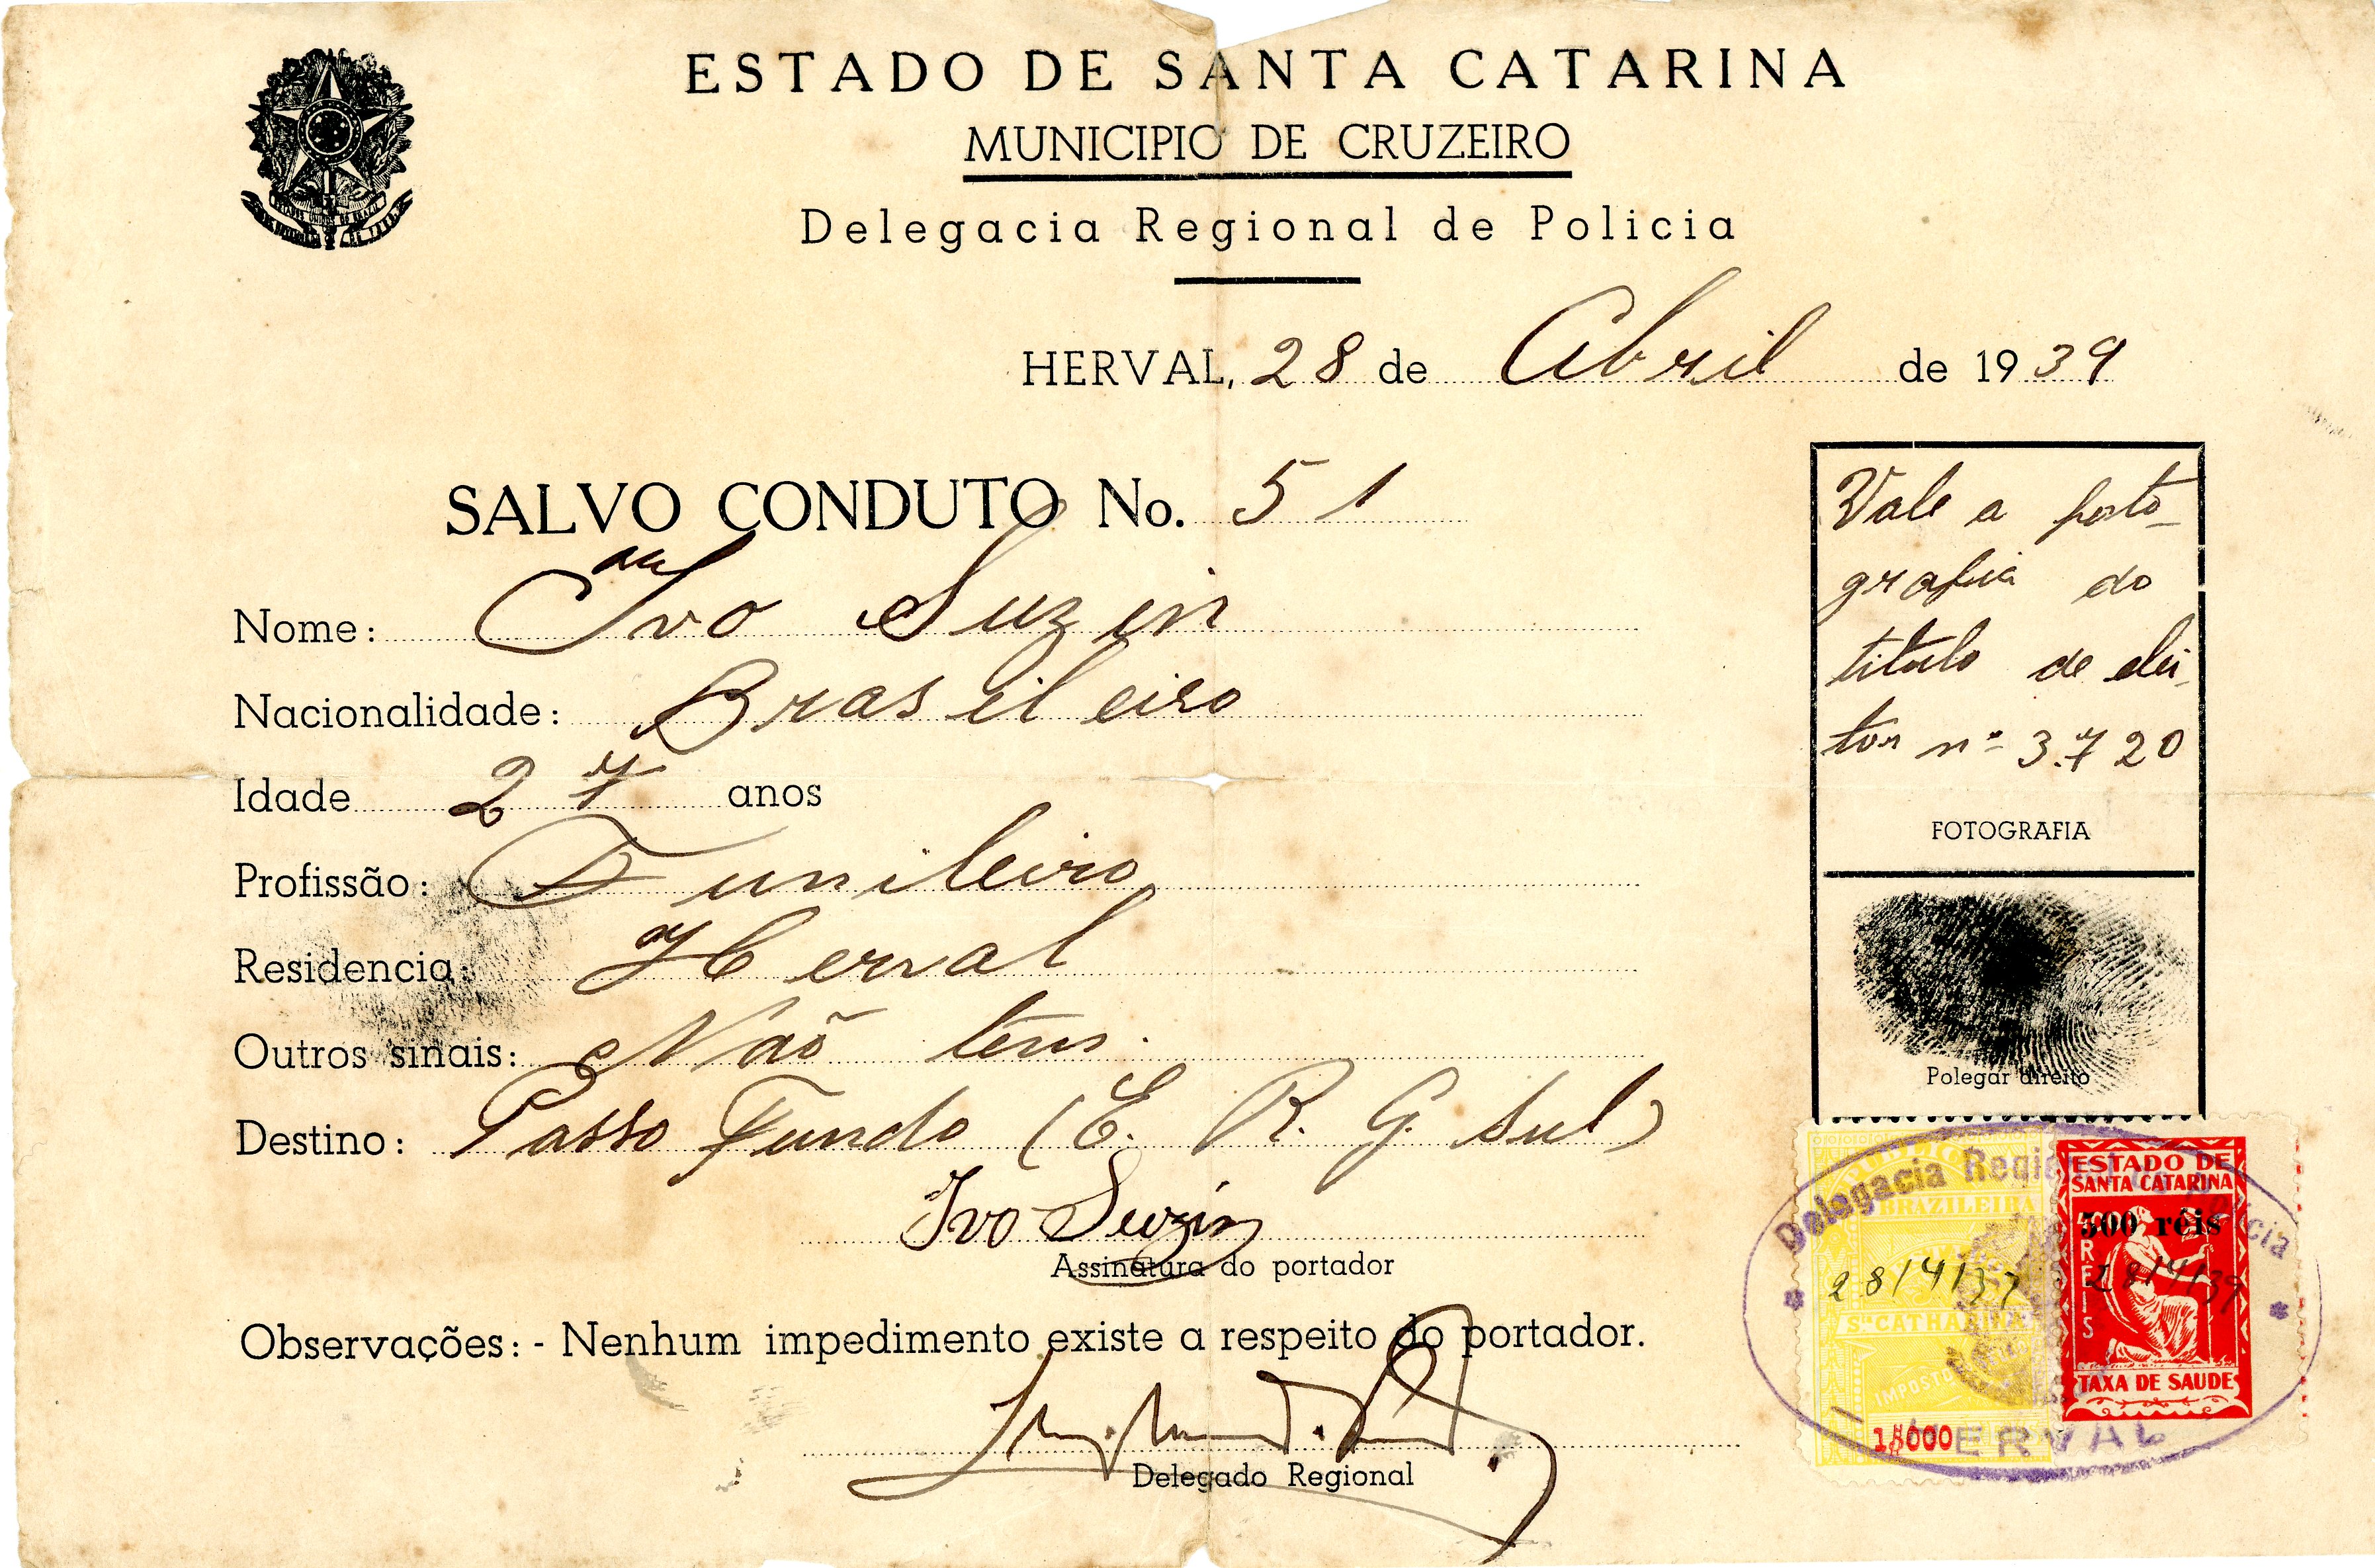 ESTADO DE SANTA CATARINA
MUNICIPIO DE CRUZEIRO
Delegacia Regional de Policia
HERVAL, 28 de Abril de 1939
SALVO CONDUTO No. 51
Nome: Ivo Suzin
Nacionalidade: Brasileiro
Idade 27 anos
Profissão: Funileiro
Residencia: Herval
Outros sinais: Não tem.
Destino: Passo Fundo (E. R. G. Sul)
Ivo Suzin
Assinatura do portador
Observações: - Nenhum impedimento existe a respeito do portador.
Delegado Regional
Vale a foto-
grafia do
titulo de elei-
tor nº 3.720
FOTOGRAFIA
Polegar direito
Delegacia Regional de Policia
HERVAL
BRAZILEIRA
28/4/39
Sta CATHARINA
IMPOSTO
1$000
ESTADO DE
SANTA CATARINA
500 réis
REIS
28/4/39
TAXA DE SAUDE